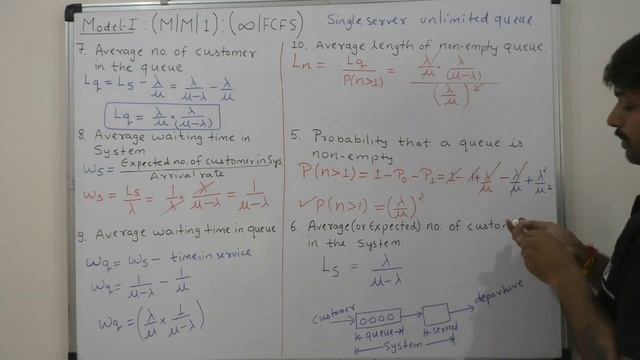 Model-I : (M|M|1) : (∞|FCFS) Single server unlimited queue
7. Average no. of customer
in the queue
Lq = Ls - λ/μ = λ/(μ-λ) - λ/μ
Lq = λ/μ × λ/(μ-λ)
8. Average waiting time in
System
Ws = Expected no. of customer in Sys / Arrival rate
Ws = Ls/λ = 1/λ × λ/(μ-λ) = 1/(μ-λ)
9. Average waiting time in queue
Wq = Ws - time in service
Wq = 1/(μ-λ) - 1/μ
Wq = (λ/μ × 1/(μ-λ))
10. Average length of non-empty queue
Ln = Lq/P(n>1) = (λ/μ · λ/(μ-λ))/(λ/μ)²
5. Probability that a queue is
non-empty
P(n>1) = 1 - P0 - P1 = 1 - 1 + λ/μ - λ/μ + λ²/μ²
✓ P(n>1) = (λ/μ)²
6. Average (or Expected) no. of
in the System.
Ls = λ/(μ-λ)
customer
departure
queue
System